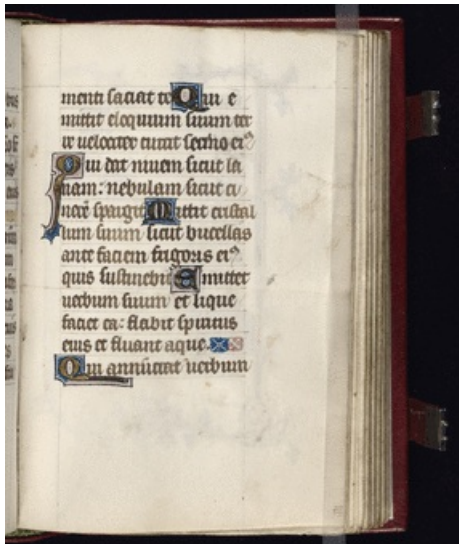 menti saciat te Qui e
mittit eloquium suum ter
re uelociter currit sermo eiꝰ
Qui dat niuem sicut la
nam: nebulam sicut ci
nerē spargit Mittit cristal
lum suum sicut bucellas
ante faciem frigoris eiꝰ
quis sustinebit Emittet
uerbum suum et lique
faciet ea: flabit spiritus
eius et fluant aque.
Qui annuntiat uerbum